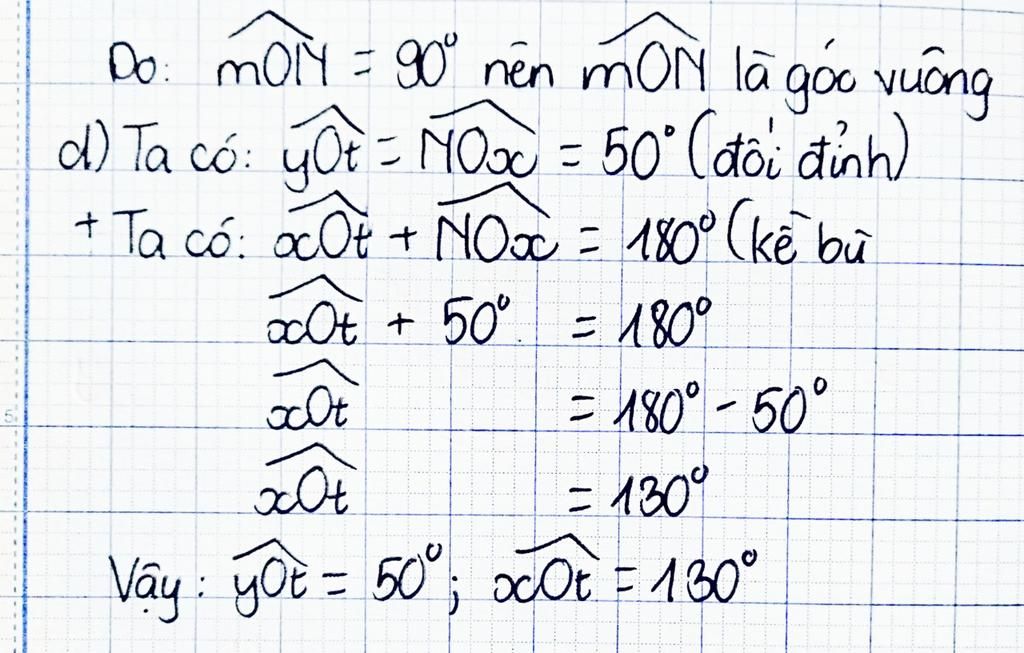 Do: mON = 90° nên mON là góc vuông
d) Ta có: yOt = NOx = 50° (đối đỉnh)
+ Ta có: xOt + NOx = 180° (kề bù
xOt + 50° = 180°
xOt = 180° - 50°
xOt = 130°
Vậy: yOt = 50°; xOt = 130°
5